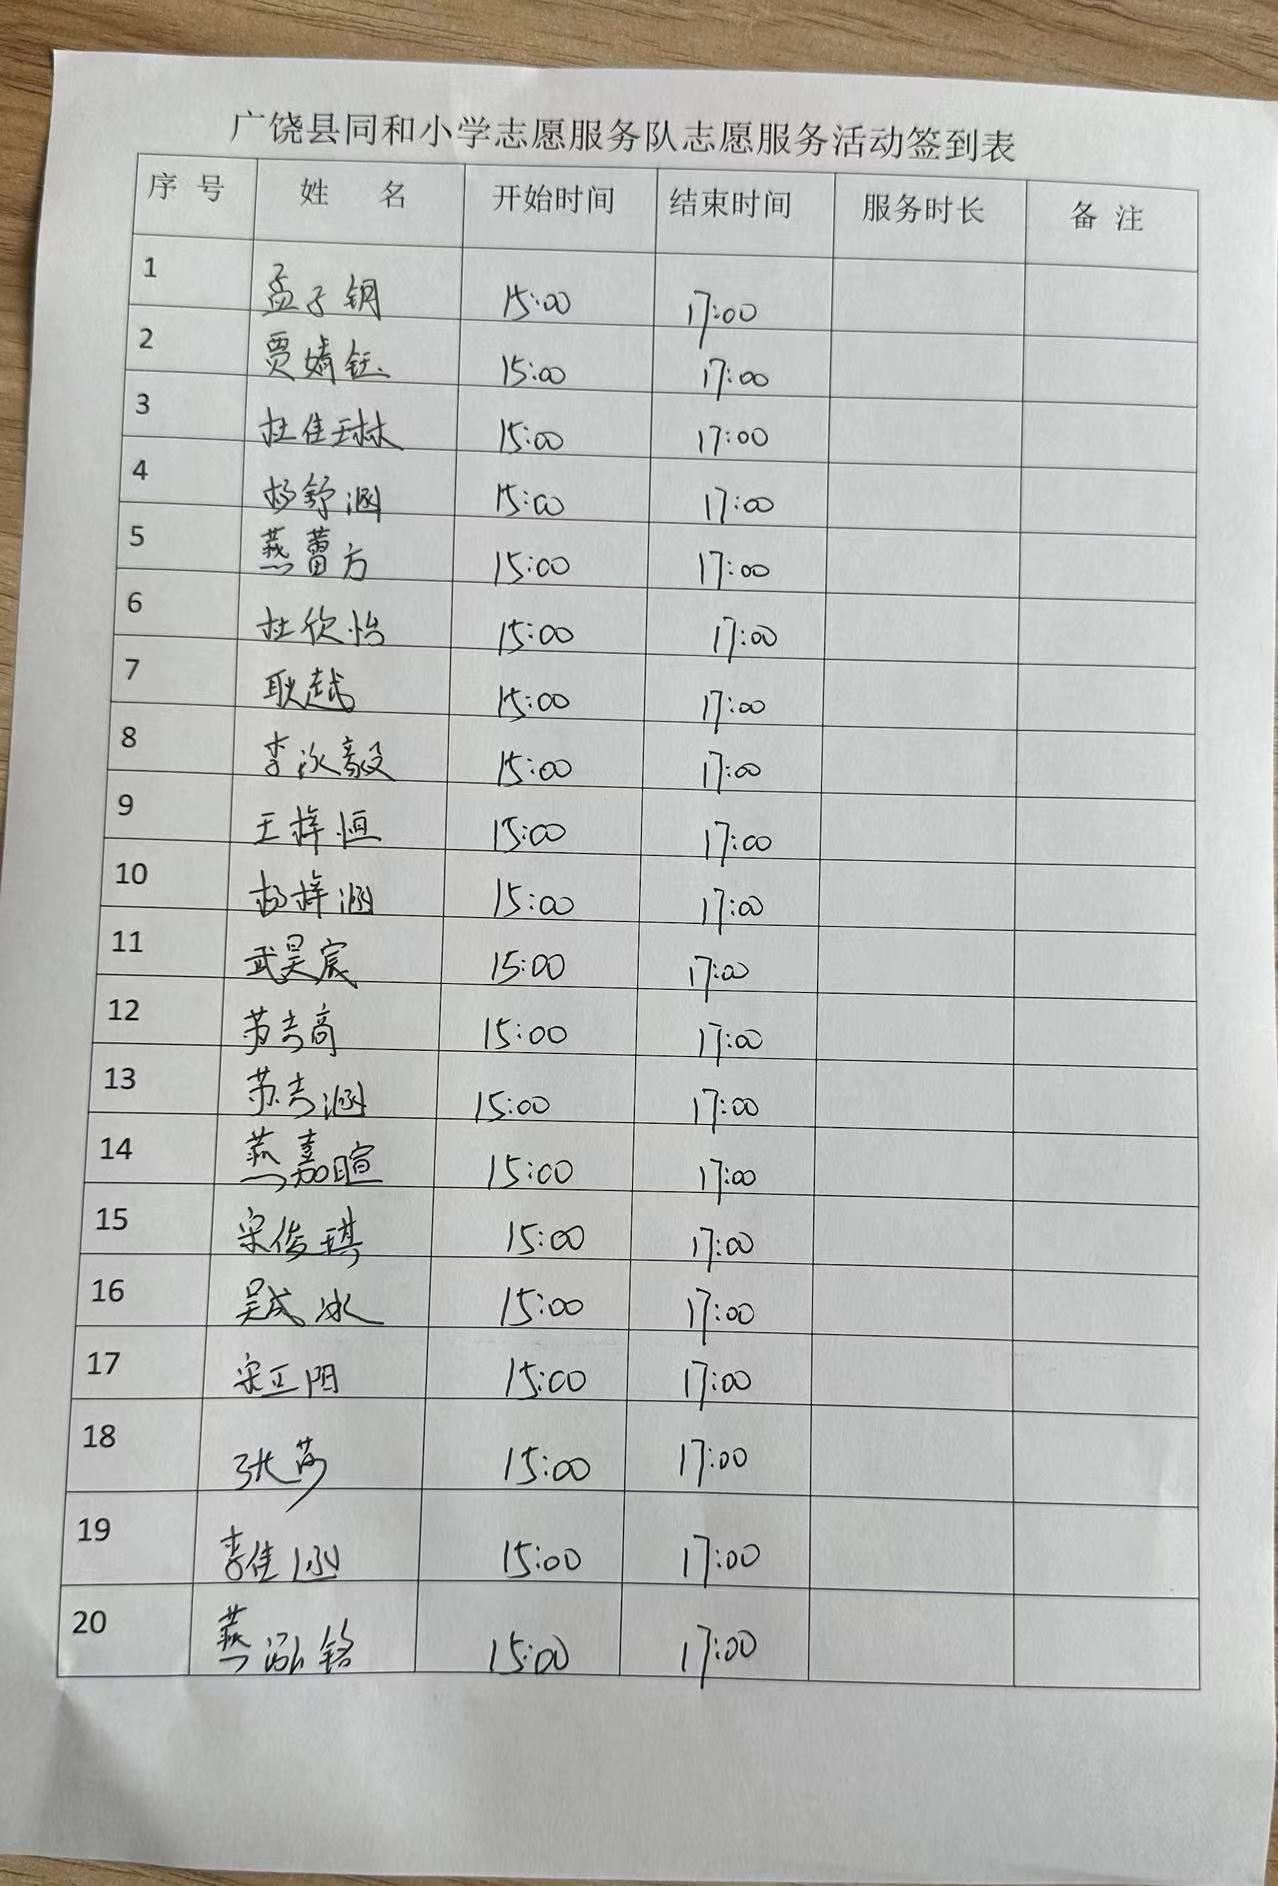 广饶县同和小学志愿服务队志愿服务活动签到表
序 号 姓 名 开始时间 结束时间 服务时长 备 注
1 孟子钥 15:00 17:00
2 贾婧钰 15:00 17:00
3 杜佳琳 15:00 17:00
4 杨舒涵 15:00 17:00
5 燕蕾方 15:00 17:00
6 杜欣怡 15:00 17:00
7 耿越 15:00 17:00
8 李泳毅 15:00 17:00
9 王梓恒 15:00 17:00
10 杨梓涵 15:00 17:00
11 武昊宸 15:00 17:00
12 苏吉高 15:00 17:00
13 苏吉涵 15:00 17:00
14 燕嘉暄 15:00 17:00
15 宋俊琪 15:00 17:00
16 吴成冰 15:00 17:00
17 宋正阳 15:00 17:00
18 张 15:00 17:00
19 李佳涵 15:00 17:00
20 燕泓铭 15:00 17:00